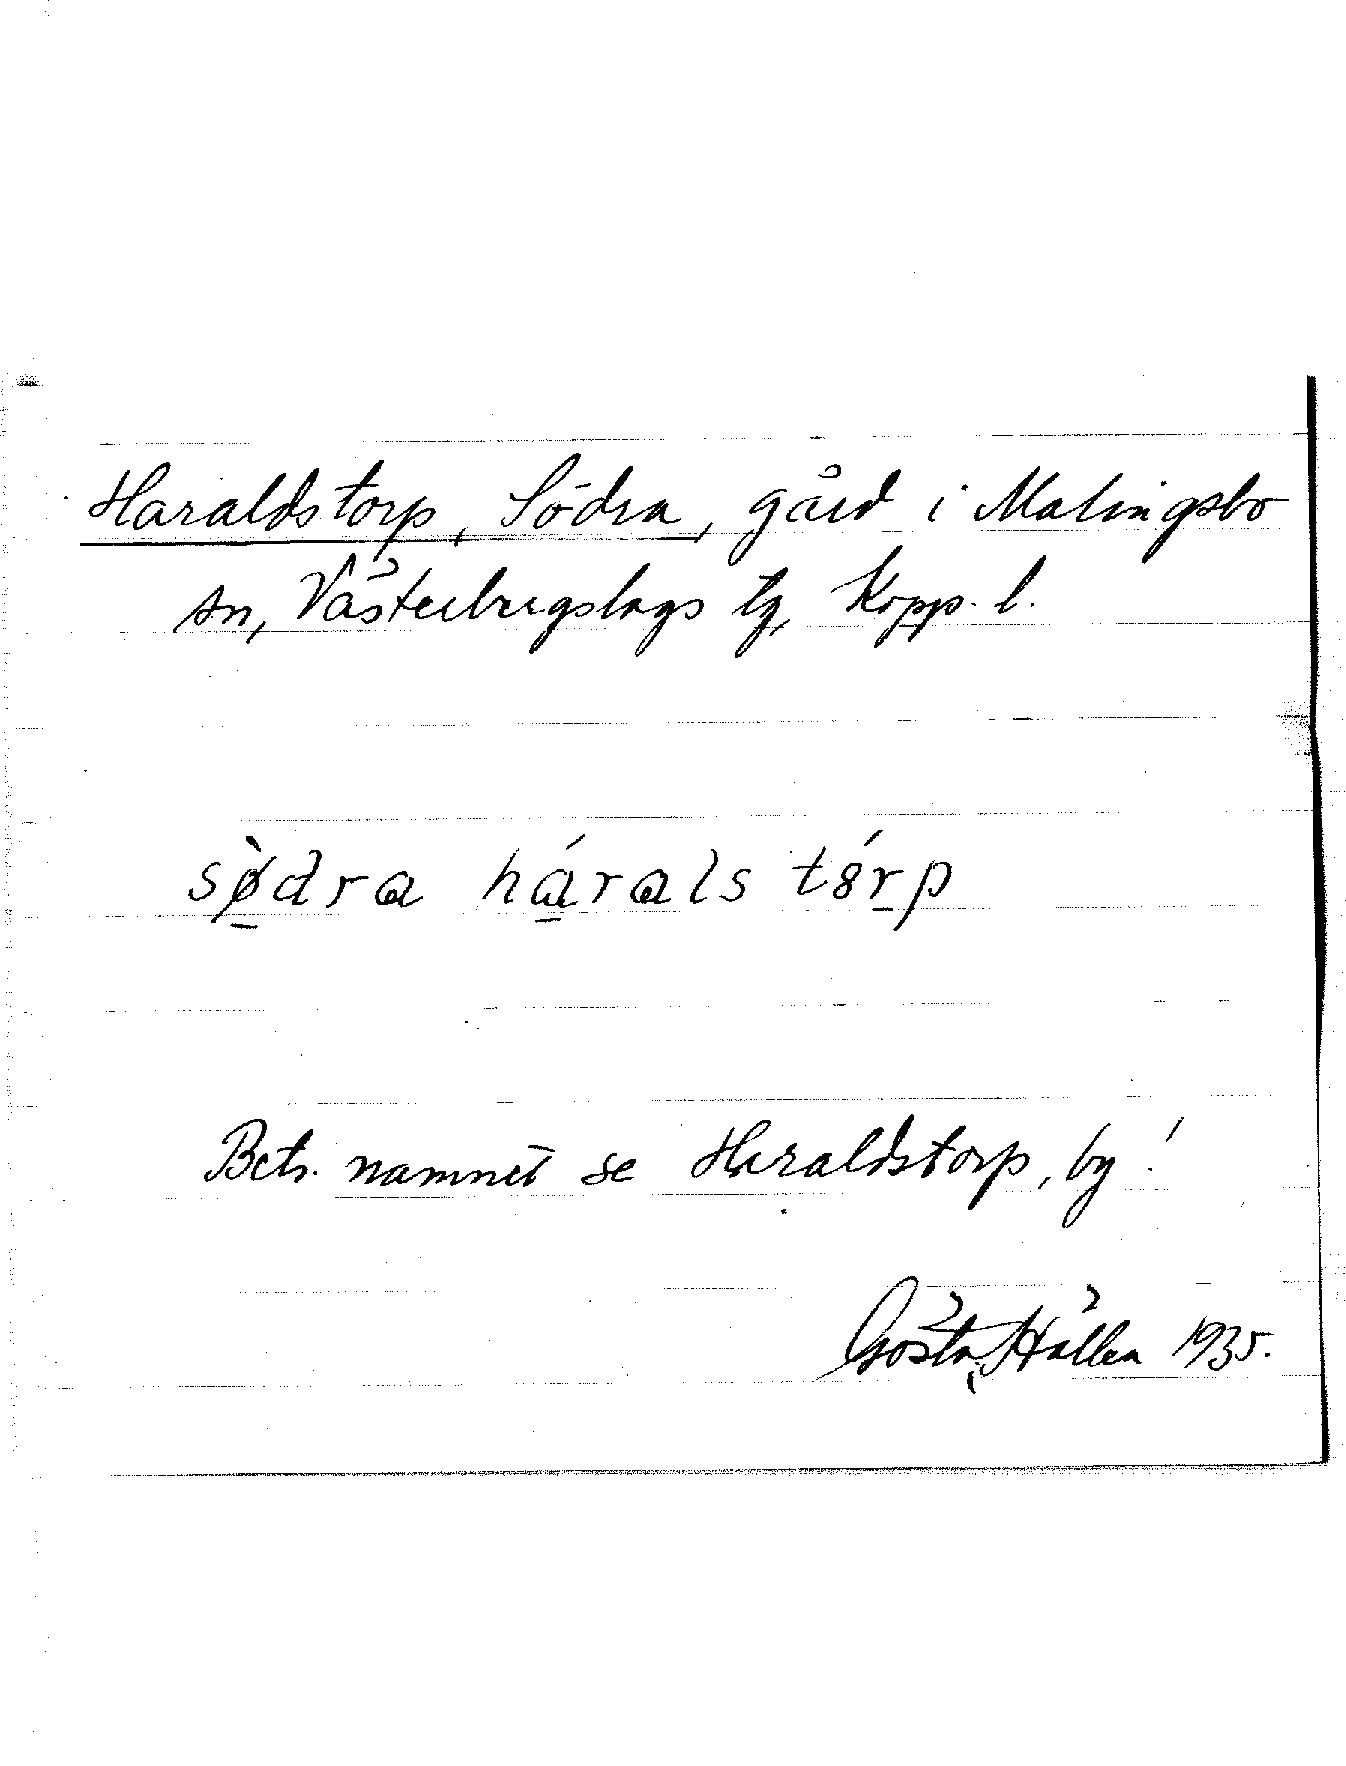 Haraldstorp, Södra, gård i Malingsbo
sn, Västerbergslags tg, Kopp. l.
sø̀dra hárals tȣ́rp
Betr. namnet se Haraldstorp, by!
Gösta Hällen 1935.